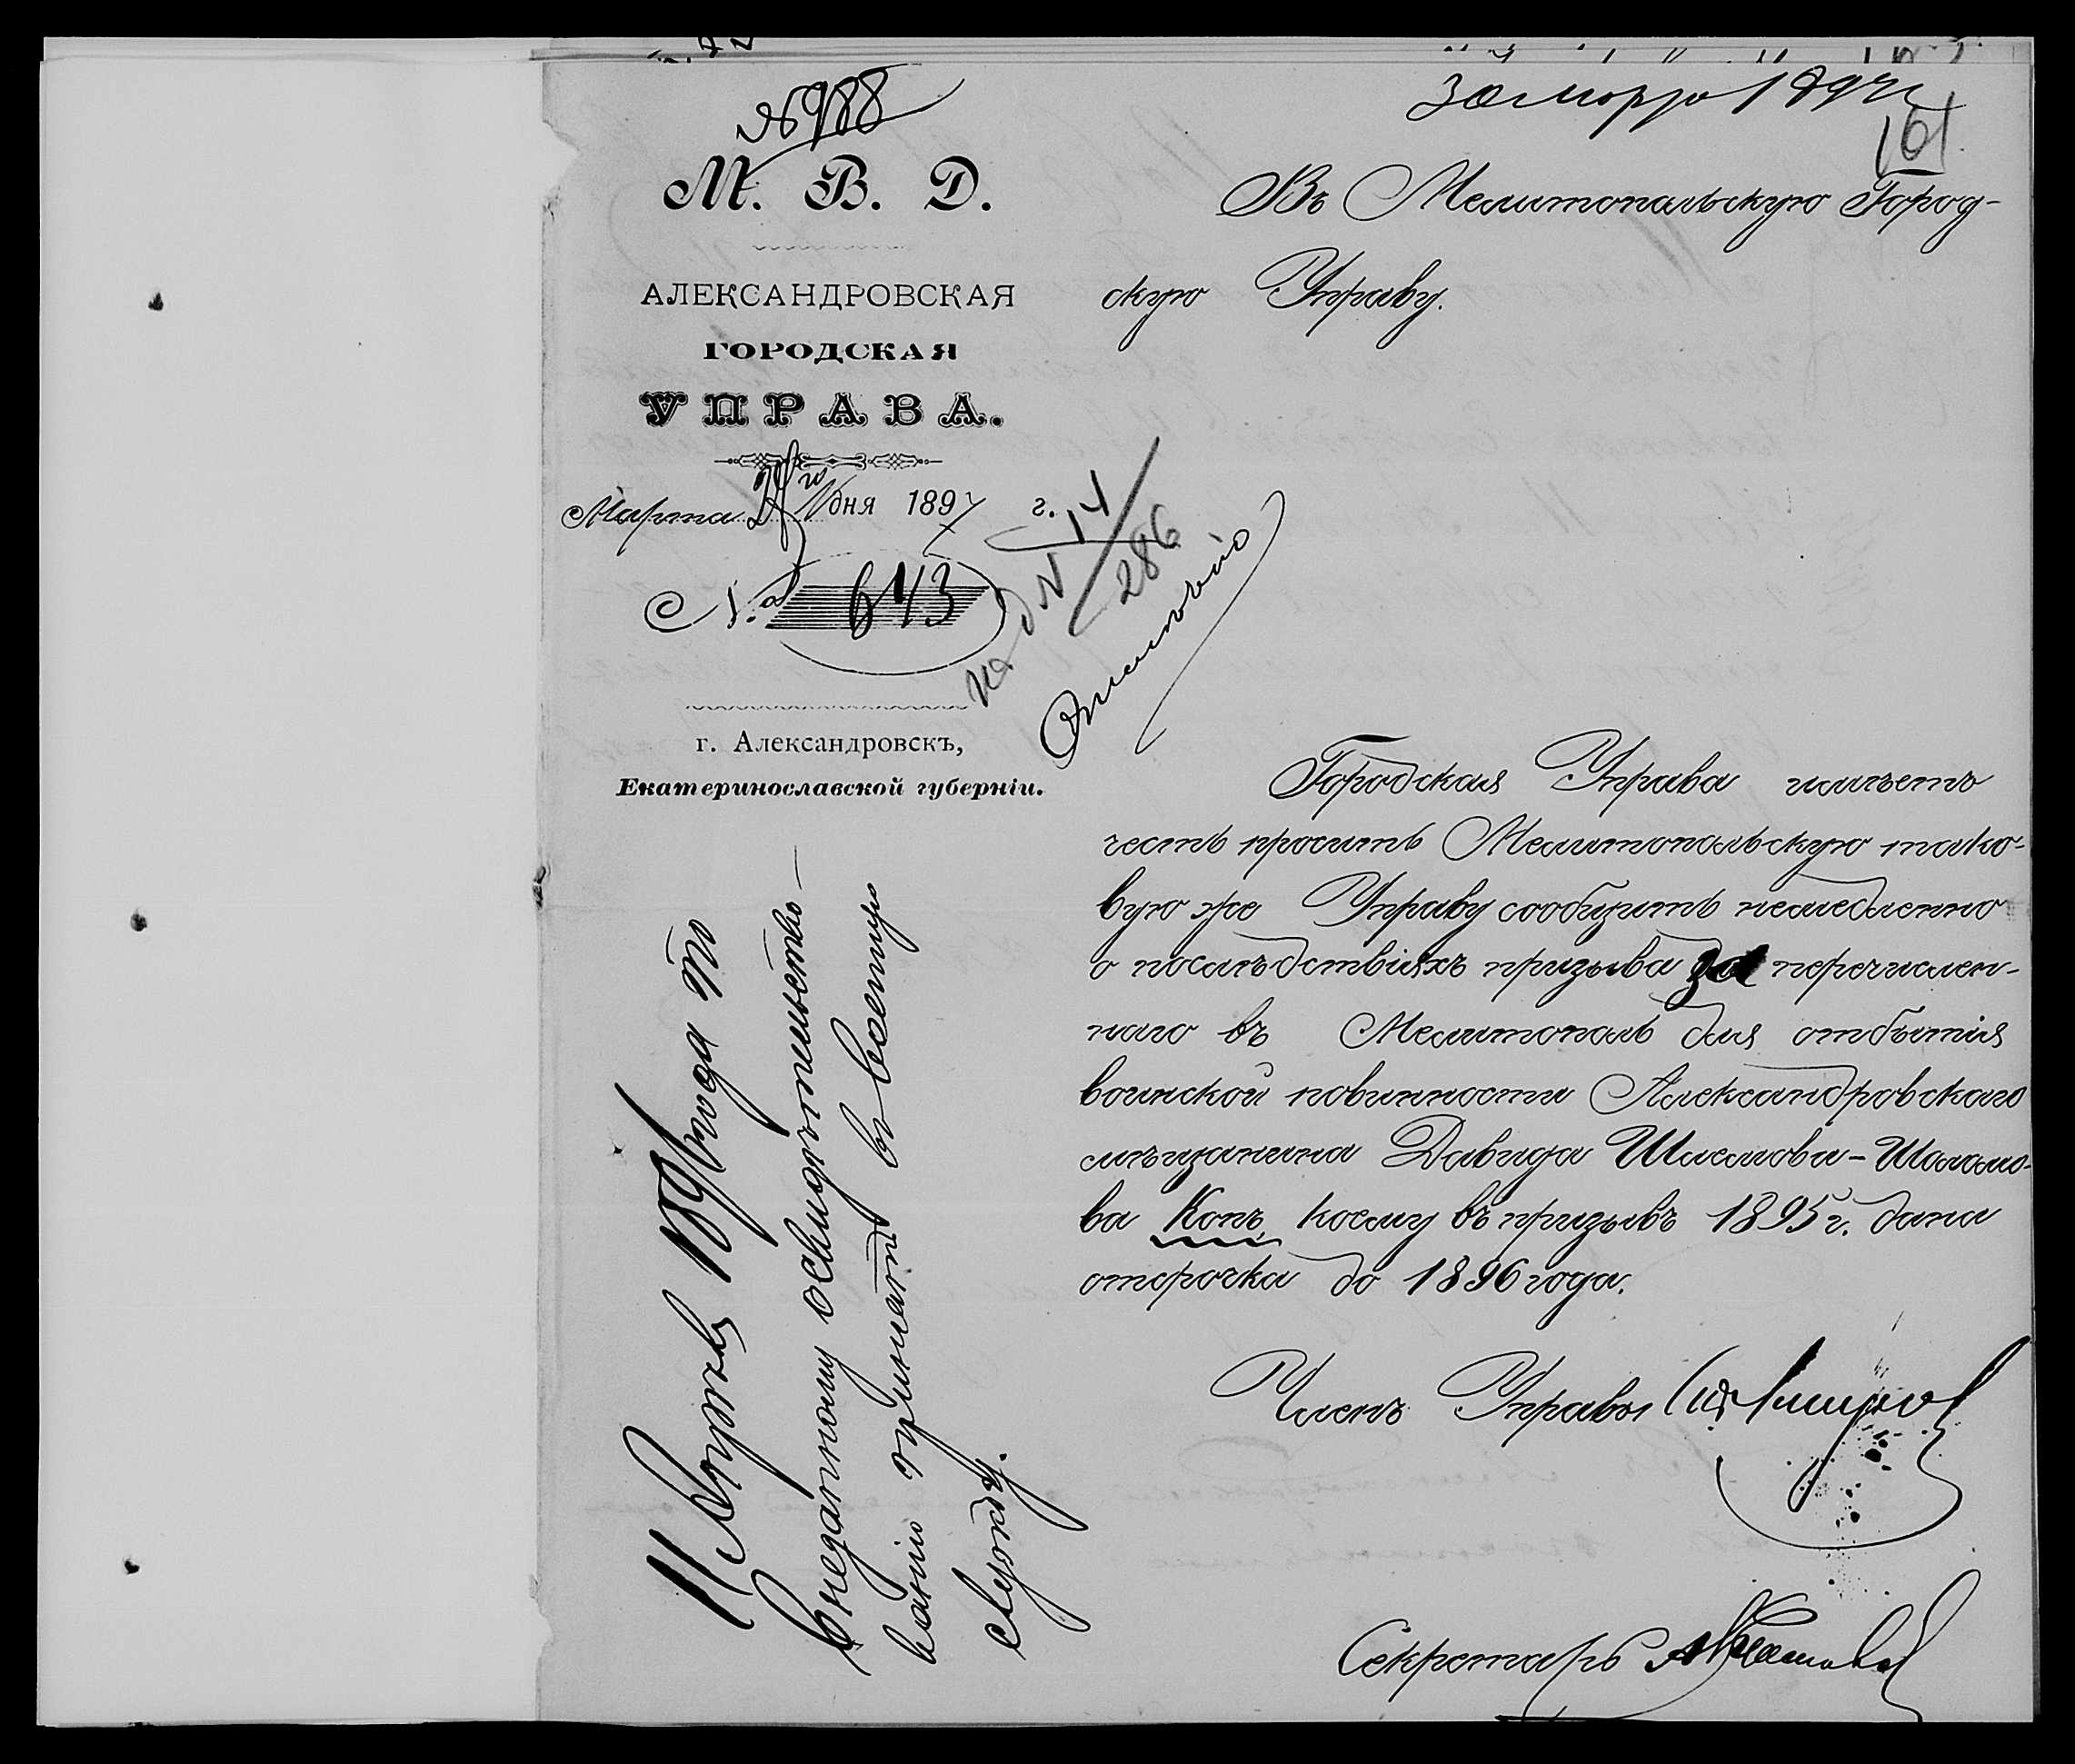 № 988
30 марта 1897 г
161
М. В. Д.
АЛЕКСАНДРОВСКАЯ
ГОРОДСКАЯ
УПРАВА.
Марта го дня 1897 г.
№ 643
на № 14/286
г. Александровскъ,
Екатеринославской губерніи.
Въ Мелитопольскую Город-
скую Управу.
Городская Управа имѣетъ
честь просить Мелитопольскую тако-
вую же Управу сообщить немедленно
о послѣдствіяхъ призыва за перечислен-
наго въ Мелитополь для отбытія
воинской повинности Александровскаго
мѣщанина Давида Шлемова-Шоломо-
ва Копъ, коему въ призывъ 1895 г. дана
отсрочка до 1896 года.
Членъ Управы
Секретарь
11 1897 года по
внезапному освидѣтельство-
ванію принятъ въ военную
службу.